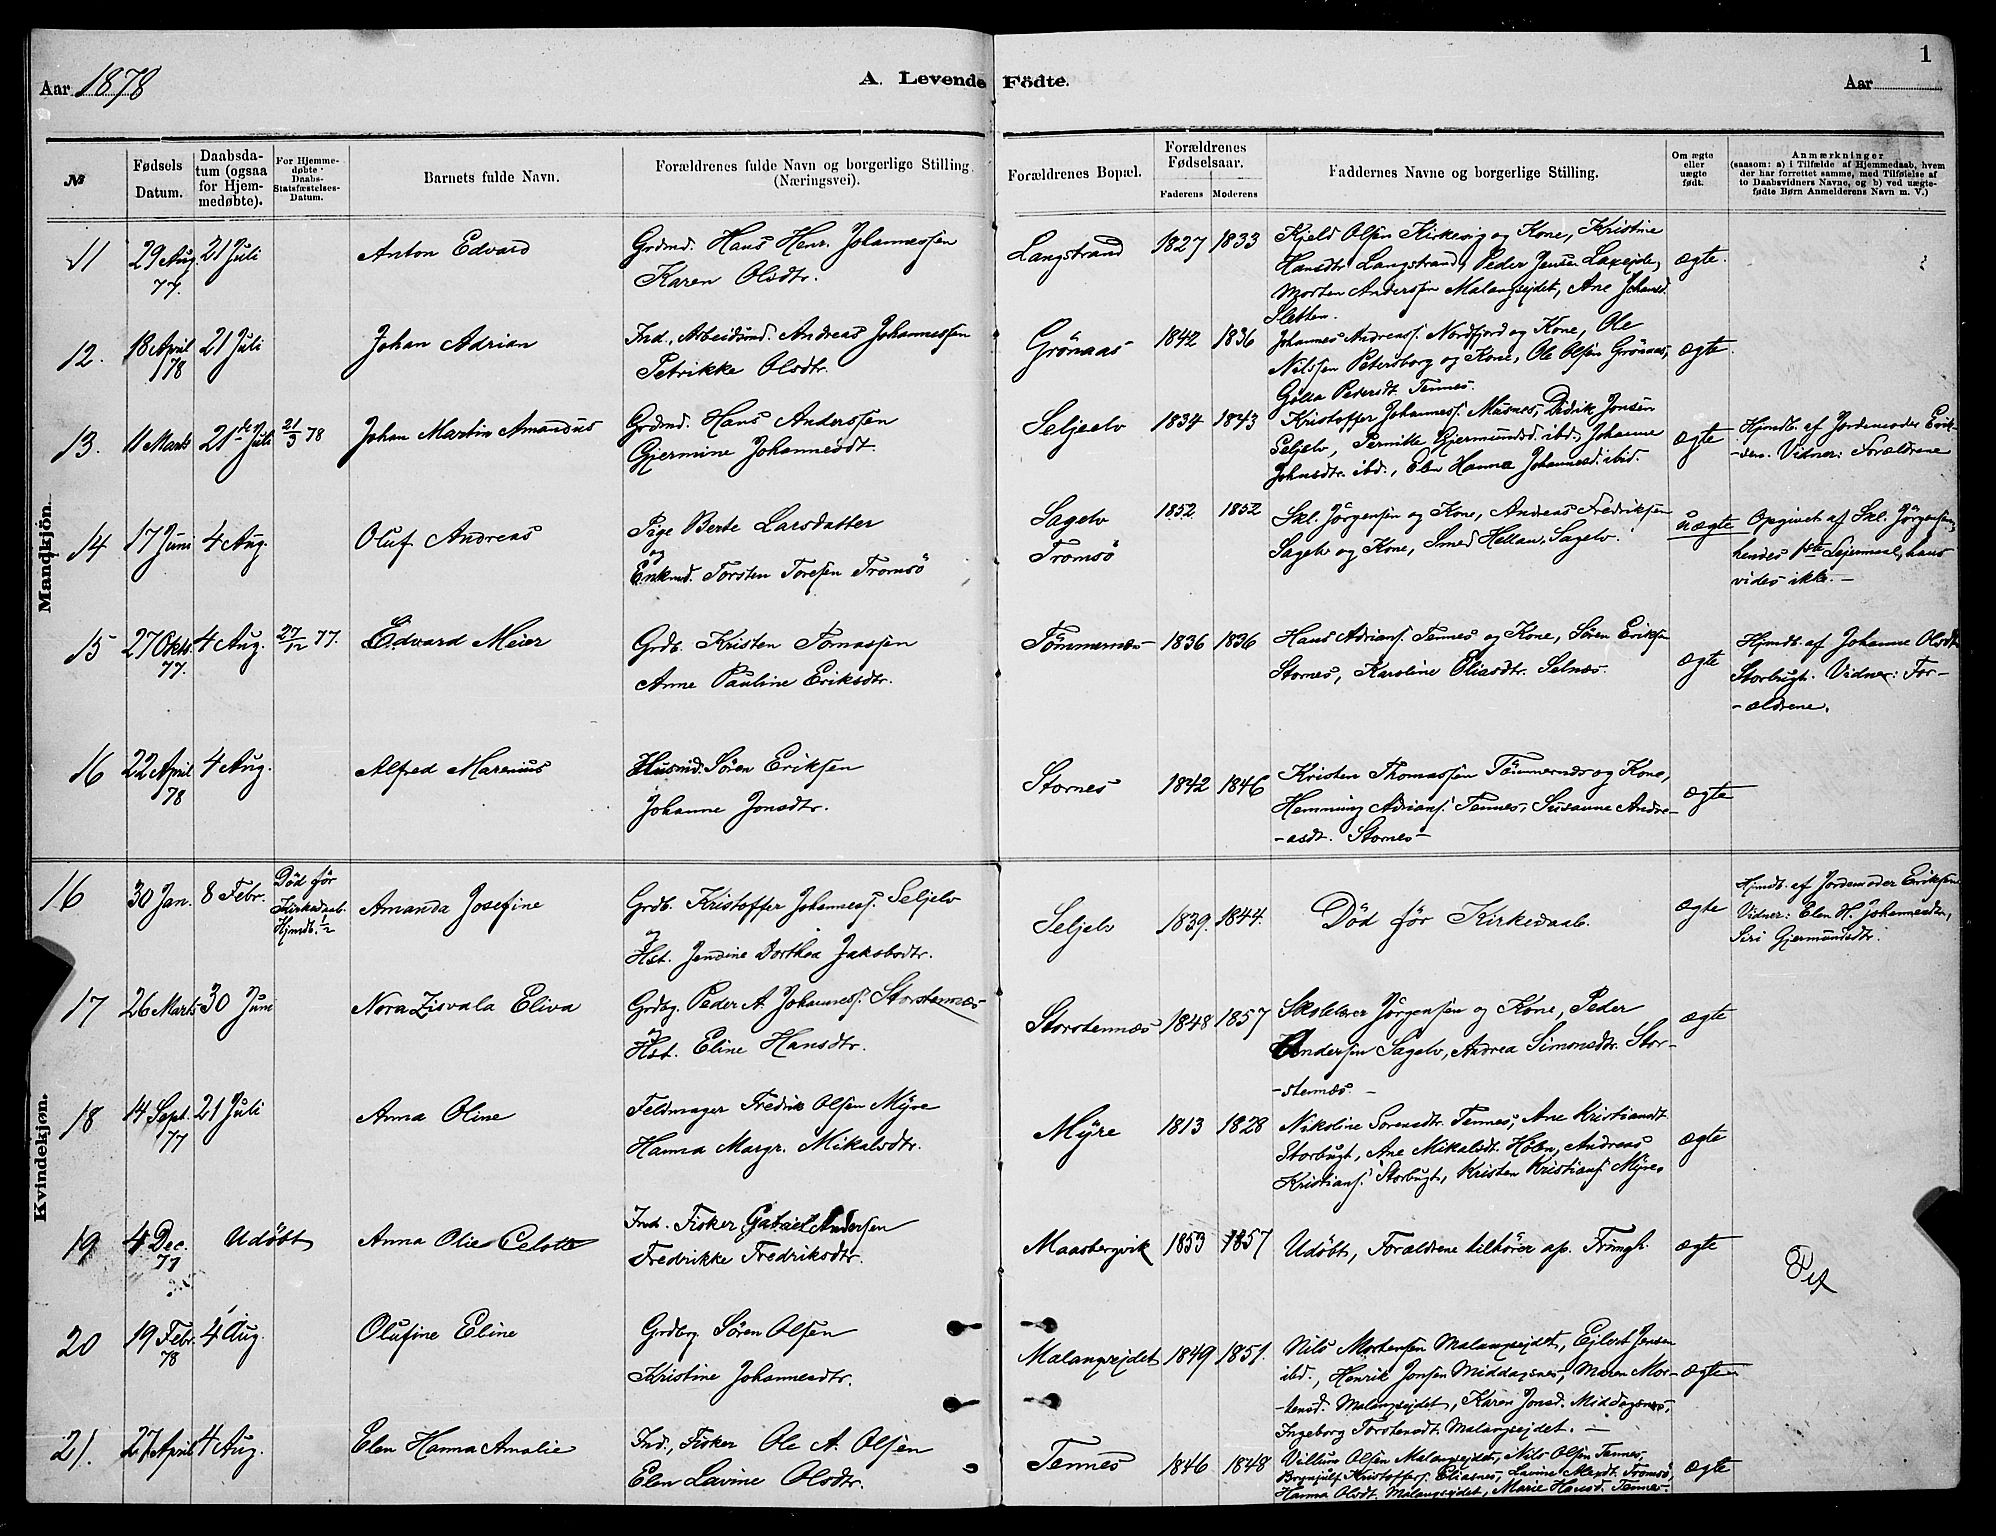 1
Aar 1878
A. Levende Födte.
Aar
№
Fødsels Datum.
Daabsdatum (ogsaa for Hjemmedøbte).
For Hjemmedøbte Daabs-Statsfæstelses-Datum.
Barnets fulde Navn.
Forældrenes fulde Navn og borgerlige Stilling. (Næringsvei).
Forældrenes Bopæl.
Forældrenes Fødselsaar.
Faderens Moderens
Faddernes Navne og borgerlige Stilling.
Om ægte eller uægte født.
Anmærkninger
(saasom: a) i Tilfælde af Hjemmedaab, hvem der har forrettet samme, med Tilføielse af to Daabsvidners Navne, og b) ved uægtefødte Børn Anmelderens Navn m. V.)
Mandkjön.
11 29 Aug. 77. 21 Juli Anton Edvard
Grdmd. Hans Henr. Johannessen
Karen Olsdtr.
Langstrand 1827 1833
Kjeld Olsen Kirkevig og Kone, Kristine
Hansdtr. Langstrand, Peder Jensen
Morten Anderssen Malangsejdet, Ane Johansd.
Sletten.
ægte.
12. 18 April 78 21 Juli Johan Adrian
Ind., Arbeidsmd. Andreas Johannessen
Petrikke Olsdtr.
Grönaas 1842 1836
Johannes Andreass. Nordfjord og Kone, Ole
Nilssen Petersborg og Kone, Ole Olsen Grönaas,
Pedersdt. Tennes.
ægte.
13. 11 Marts 21de Juli 21/3 78 Johan Martin Amandus
Grdmd. Hans Anderssen
Gjermine Johannesdt.
Seljelv 1834 1843
Kristoffer Johanness. Didrik Jonsen
Seljelv, Pernille Gjermundsd. ibd., Johanne
Johnsdtr. ibd., Elen Hanna Johannesd. ibid.
ægte
Hjmdb. af Jordemoder Erik-
-sen. Vidner: Forældrene
14 17 Juni 4 Aug. Oluf Andreas
Pige Berte Larsdatter
og
Enkmd. Torsten Toresen Tromsö
Sagelv
Tromsö
1852 1852
Skl. Jörgensen og Kone, Andreas Fredriksen
Sagelv og Kone, Smed Hellan, Sagelv.
uægte
Opgivet af Skl. Jörgensen,
hendes 1ste Lejermaal, hans
vides ikke. -
15 27 Oktb. 77. 4 Aug. 27/12 77. Edvard Meier
Grdb. Kristen Tomassen
Anne Pauline Eriksdtr.
Tömmernæs 1836 1836
Hans Adrians. Tennes og Kone, Sören Eriksen
Stornes, Karoline Eliasdtr. Selnæs.
ægte
Hjmdb. af Johanne Olsdt.
Storbugt. Vidner: For-
-ældrene.
16 22 April 78 4 Aug. Alfred Marenius
Husmd. Sören Eriksen
Johanne Jonsdtr.
Stornes 1842 1846
Kristen Thomassen Tömmernæs og Kone,
Hemming Adrians. Tennes, Susanne Andre-
-asdt. Stornes -
ægte
Kvindekjøn.
16 30 Jan. 8 Febr. Död för Kirkedaab. Hjmdb. 1/2 Amanda Josefine
Grdb. Kristoffer Johanness. Seljelv
og
Hst. Jensine Dorthea Jakobsdtr.
Seljelv 1839. 1844.
Död för Kirkedaab.
ægte
Hjmdb. af Jordemoder Eriksen
Vidner: Elen H. Johannesdtr,
Siri Gjermundsdtr.
17 26 Marts 30 Juni Nora Zisvala Eliva
Grdbg. Peder A. Johanness. Storstennæs
og
Hst. Eline Hansdtr.
Storstennæs 1848 1857
Skolelærer Jörgensen og Kone, Peder
Andersen Sagelv, Andrea Simonsdtr. Stor-
-stennæs. -
ægte
18 14 Sept. 77 21 Juli Anna Oline
Feldmager Fredrik Olsen Myre
Hanna Margr. Mikalsdtr.
Myre 1813 1828
Nikoline Sörensdtr. Tennes, Ane Kristiansdt.
Storbugt, Ane Mikalsdt. Holen, Andreas
Kristians. Storbugt, Kristen Kristians. Myre.
ægte
19 4 Dec. 77 Udöbt Anna Olie Celotte
Ind. Fisker Gabriel Andersen
Fredrikke Fredriksdtr.
Maasbergvik 1853 1857
Udöbt, Forældrene tilhörer ap. Frimgh.
ægte
20 19 Febr. 78 4 Aug. Olufine Eline
Grdbrg Sören Olsen
Kristine Johannesdtr.
Malangsejdet 1849 1851.
Nils Mortensen Malangsejdet, Ejlert Jensen
ibd., Henrik Jonsen Middagsnes, Maren Mor-
-tensd. Malangsejdet, Karen Jonsd. Middagsnes,
Ingeborg Torstensdt. Malangsejdet. -
ægte
21. 27 April 4 Aug. Elen Hanna Amalie
Ind., Fisker Ole A. Olsen
Elen Lavine Olsdtr.
Tennes 1846 1848
Villum Olsen Malangsejdet, Nils Olsen Tennes,
Brynjulf Kristoffers. Eliasnes, Lavine Tromsö,
Hanna Olsdt. Malangsejdet, Marie Hansd. Tennes.
ægte